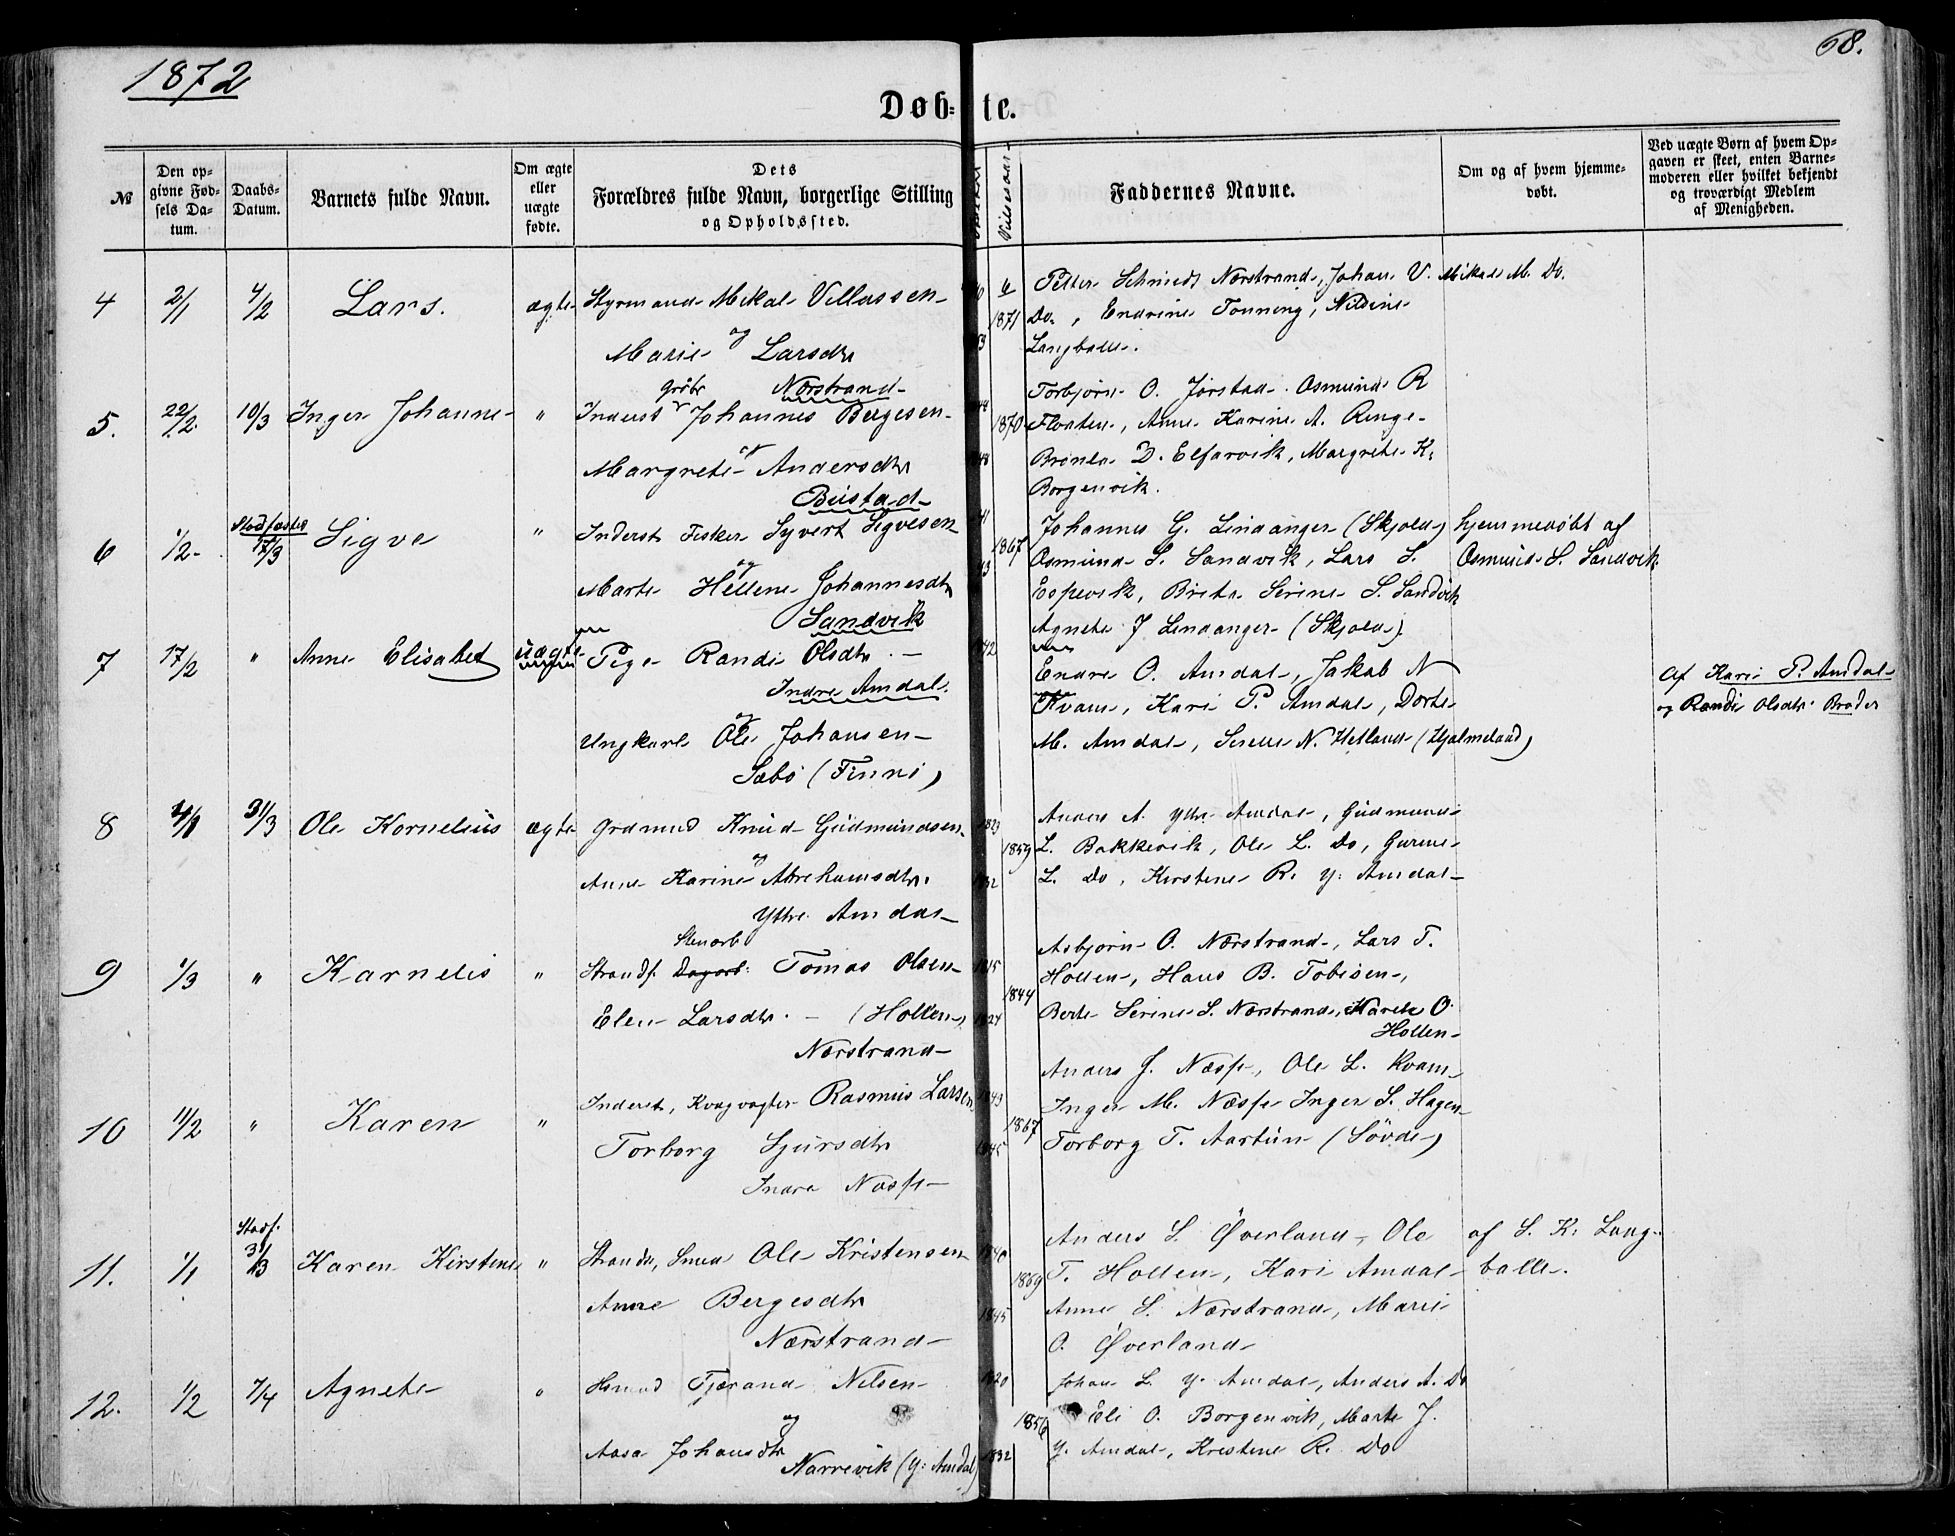 1872
68.
Døb= te.
№
Den op-
givne Fød-
sels Da-
tum.
Daabs-
Datum.
Barnets fulde Navn.
Om ægte
eller
uægte
fødte.
Dets
Forældres fulde Navn, borgerlige Stilling
og Opholdssted.
Faddernes Navne.
Om og af hvem hjemme-
døbt.
Ved uægte Børn af hvem Op-
gaven er skeet, enten Barne-
moderen eller hvilket bekjendt
og troværdigt Medlem
af Menigheden.
4 2/1 4/2 Lars. ægte Styrmand Mikal Villassen
og
Marie Larsdtr
Nærstrand
6
1871
Petter Schmidt Nærstrand, Johan V. Mikal M. Do.
Do., Endrine Tonning, Nildine
Langballe.
5. 22/2 10/3 Inger Johanne " Inderst Johannes Bergesen
og
Margrete Andersdtr
Bustad
48
1870
48
Torbjørn O. Jørstad. Osmund R
Floaten, Anne Karine A. Ringe
D. Elfarvik, Margrete K.
Borgenvik.
6 1/2 Stadfæstet
17/3 Sigve " Inderst Fisker Syvert Sigvesen
og
Marte Hellene Johannesdtr
Sandvik
41
1867
43
Johannes G. Lindanger (Skjold) hjemmedøbt af
Osmund S. Sandvik, Lars S. Osmund S. Sandvik
Espevik, Brita Serine S. Sandvik
Agnete J Lindanger (Skjold)
7 17/2 " Anne Elisabet uægte Pige Randi Olsdtr
Indre Amdal.
og
Ungkarl Ole Johansen
Sæbö (Finnö)
1842
Endre O. Amdal, Jakob N
Kvam, Kari P. Amdal, Dorte
M. Amdal, N. Hetland (Hjelmeland)
Af Kari P. Amdal
og Randi Olsdtr. Broder
8 31/3 Ole Kornelius ægte Grdmnd Knud Gudmundsen
og
Anne Karine Abrehamsdtr.
Ytre Amdal
1823
1859
1832
Anders A. Ytre Amdal, Gudmund
L. Bakkevik, Ole L. Do, Gurine
L. Do, Kirstine R. Y. Amdal
9 1/3 " Karnelis " Strands. Dagarb. Tomas Olsen
Stenarb
Elen Larsdtr. (Hollen)
Nærstrand
1815
1844
1827
Asbjørn O. Nærstrand, Lars T.
Hollen, Hans B. Tobisen,
Berte Serine S. Nærstrand, O.
Hollen
10 11/2 " Karen " Inderst, Kvægvogter Rasmus Larsen
Torborg Sjursdtr
Indre Næsse
1843
1867
1845
Anders J. Næsse, Ole L. Kvam
Inger M. Næsse Inger S. Hagen
Torborg T. Aartun (Sövde)
11. 1/1 Stadf.
31/3 Karen Kirstine " Strands, Smed Ole Kristensen
Anne Bergesdtr
Nærstrand
1840
1869
1845
Anders S. Øverland, Ole af S. K. Lang-
T. Hollen, Kari Amdal balle.
Anne S. Nærstrand, Marie
O. Øverland
12. 1/2 7/4 Agnete " Husmd Tjærand Nilsen
og
Aasa Johansdtr
Narrevik (Y. Amdal)
1820
1856
1832
Johan L. Y. Amdal, Anders A. Do
Eli O. Borgenvik, Marte J.
Y. Amdal, Kristine R. Do